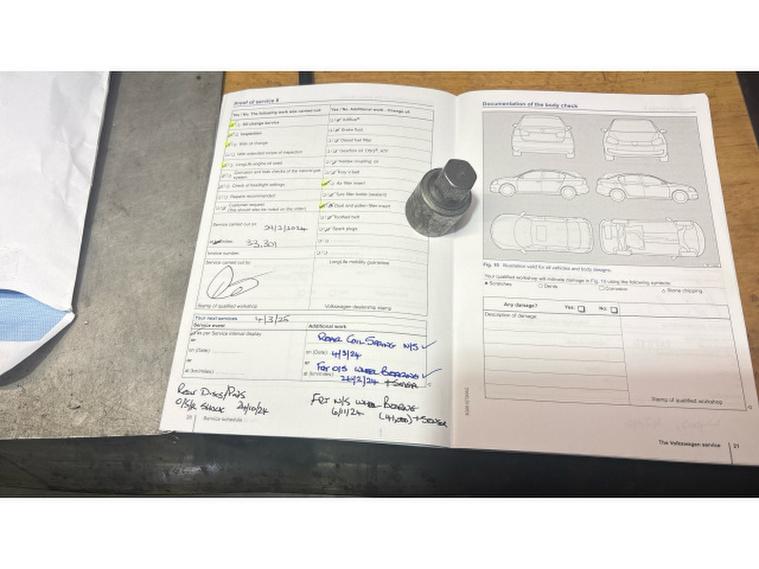 Proof of service 8
Yes / No The following work was carried out
Oil change service
Inspection
With oil change
With extended scope of inspection
LongLife engine oil used
Corrosion and leak checks of the natural gas system
Check of headlight settings
Repairs recommended
Customer request
(this should also be noted on the order)
Service carried out on: 29/2/2024
at miles: 33,301
Invoice number:
Service carried out by:
Stamp of qualified workshop
Yes / No Additional work - Change of:
AdBlue®
Brake fluid
Diesel fuel filter
Haldex coupling, oil
Poly V-belt
Air filter insert
Dust and pollen filter insert
Toothed belt
Spark plugs
LongLife mobility guarantee
Volkswagen dealership stamp
Your next services 4/3/25
Service event
as per Service interval display
or
on (Date)
or
at (km/miles)
Additional work
REAR COIL SPRING N/S ✓
on (Date) 4/3/24
or
FRT O/S WHEEL BEARING ✓
at (km/miles) + SENSOR
REAR DISCS/PADS
O/S/R SHOCK
FRT N/S WHEEL BEARING
6/11/24 (41,000) + SENSOR
20 Service schedule
Documentation of the body check
Fig. 10 Illustration valid for all vehicles and body designs.
Your qualified workshop will indicate damage in Fig. 10 using the following symbols:
Scratches Dents Corrosion Stone chipping
Any damage? Yes: No:
Description of damage:
Stamp of qualified workshop
The Volkswagen service 21